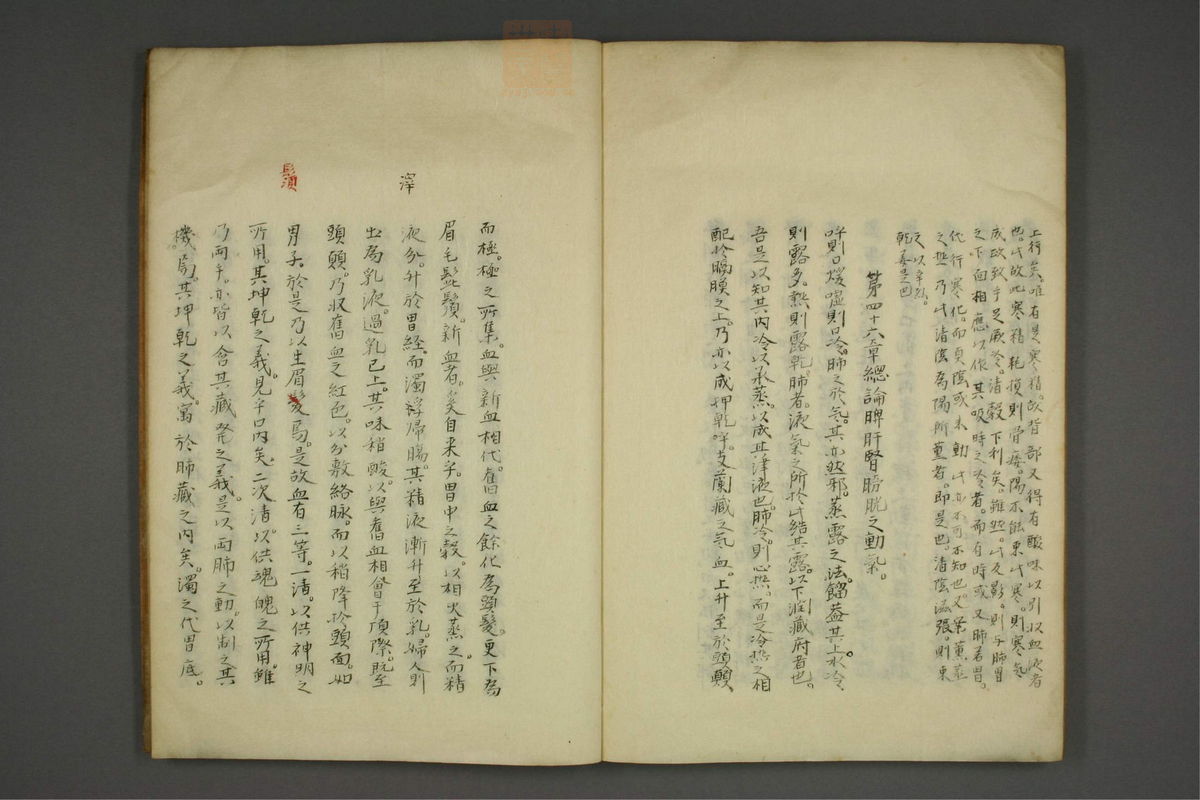 上行矣。唯有是寒精。故背部又得有酸味以引以血液者
也。此故此寒精耗損則骨痿。陽不能東此寒。則寒氣
成政致手足厥冷。清穀下利矣。雖然。此及影。則与肺胃
之下面相應。以依其吸時之冷者。而有時或又肺若胃。
化行寒化。而真陰或未動。此亦不可不知也。又葉薰蒸
之熱。乃此清陰為陽所薰者。即是也。清陰滋張。則東
之以辛烈。
乾姜是已
第四十六五章總論脾肝腎膀胱之動氣。
呼則口煖噓則口冷。肺之於氣。其亦然邪。蒸露之法。餾蓋其上水冷
則露多。熱則露乾。肺者。液氣之所於此結其露。以下潤藏府者也。
吾是以知其内冷以承蒸。以成其津液也。肺冷。則心熱。而是冷熱之相
配於膈膜之上。乃亦以成押乾。呼。支蘭藏之氣血。上升至於頭顛、
而極。極之所集。血與新血相代。舊血之餘化為頭髮。更下為
眉毛髭鬚。新血者。奚自来乎。胃中之穀。以相火蒸之。而精
澤
液分。升於胃經。而濁滓帰腸。其精液漸升至於乳。婦人則
出為乳液。過乳已上。其味稍酸。以與舊血相會于項際。既至
頭顛。乃収舊血之紅色。以分敷絡脉。而以稍降於頭面。如
鬚
男子。於是乃以生眉髮焉。是故血有三等。一清。以供神明之
所用。其坤乾之義。見乎口内矣。二次清。以供魂魄之所用。雖
乃両乎。亦皆以含其藏発之義。是以両肺之動。以制之其
機。焉。其坤乾之義。寓於肺藏之内矣。濁之代胃底。